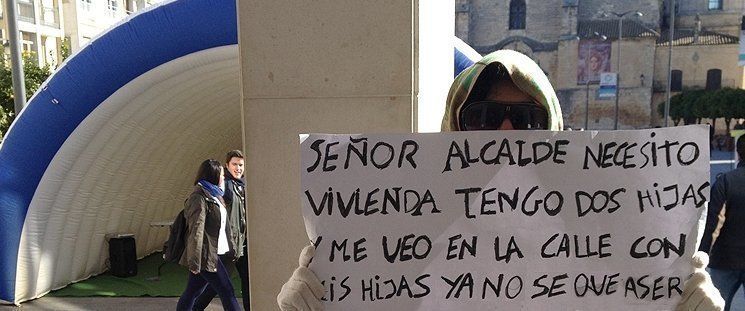 SEÑOR ALCALDE NECESITO
VIVLENDA TENGO DOS HIJAS
Y ME VEO EN LA CALLE CON
MIS HIJAS YA NO SE QUE ASER